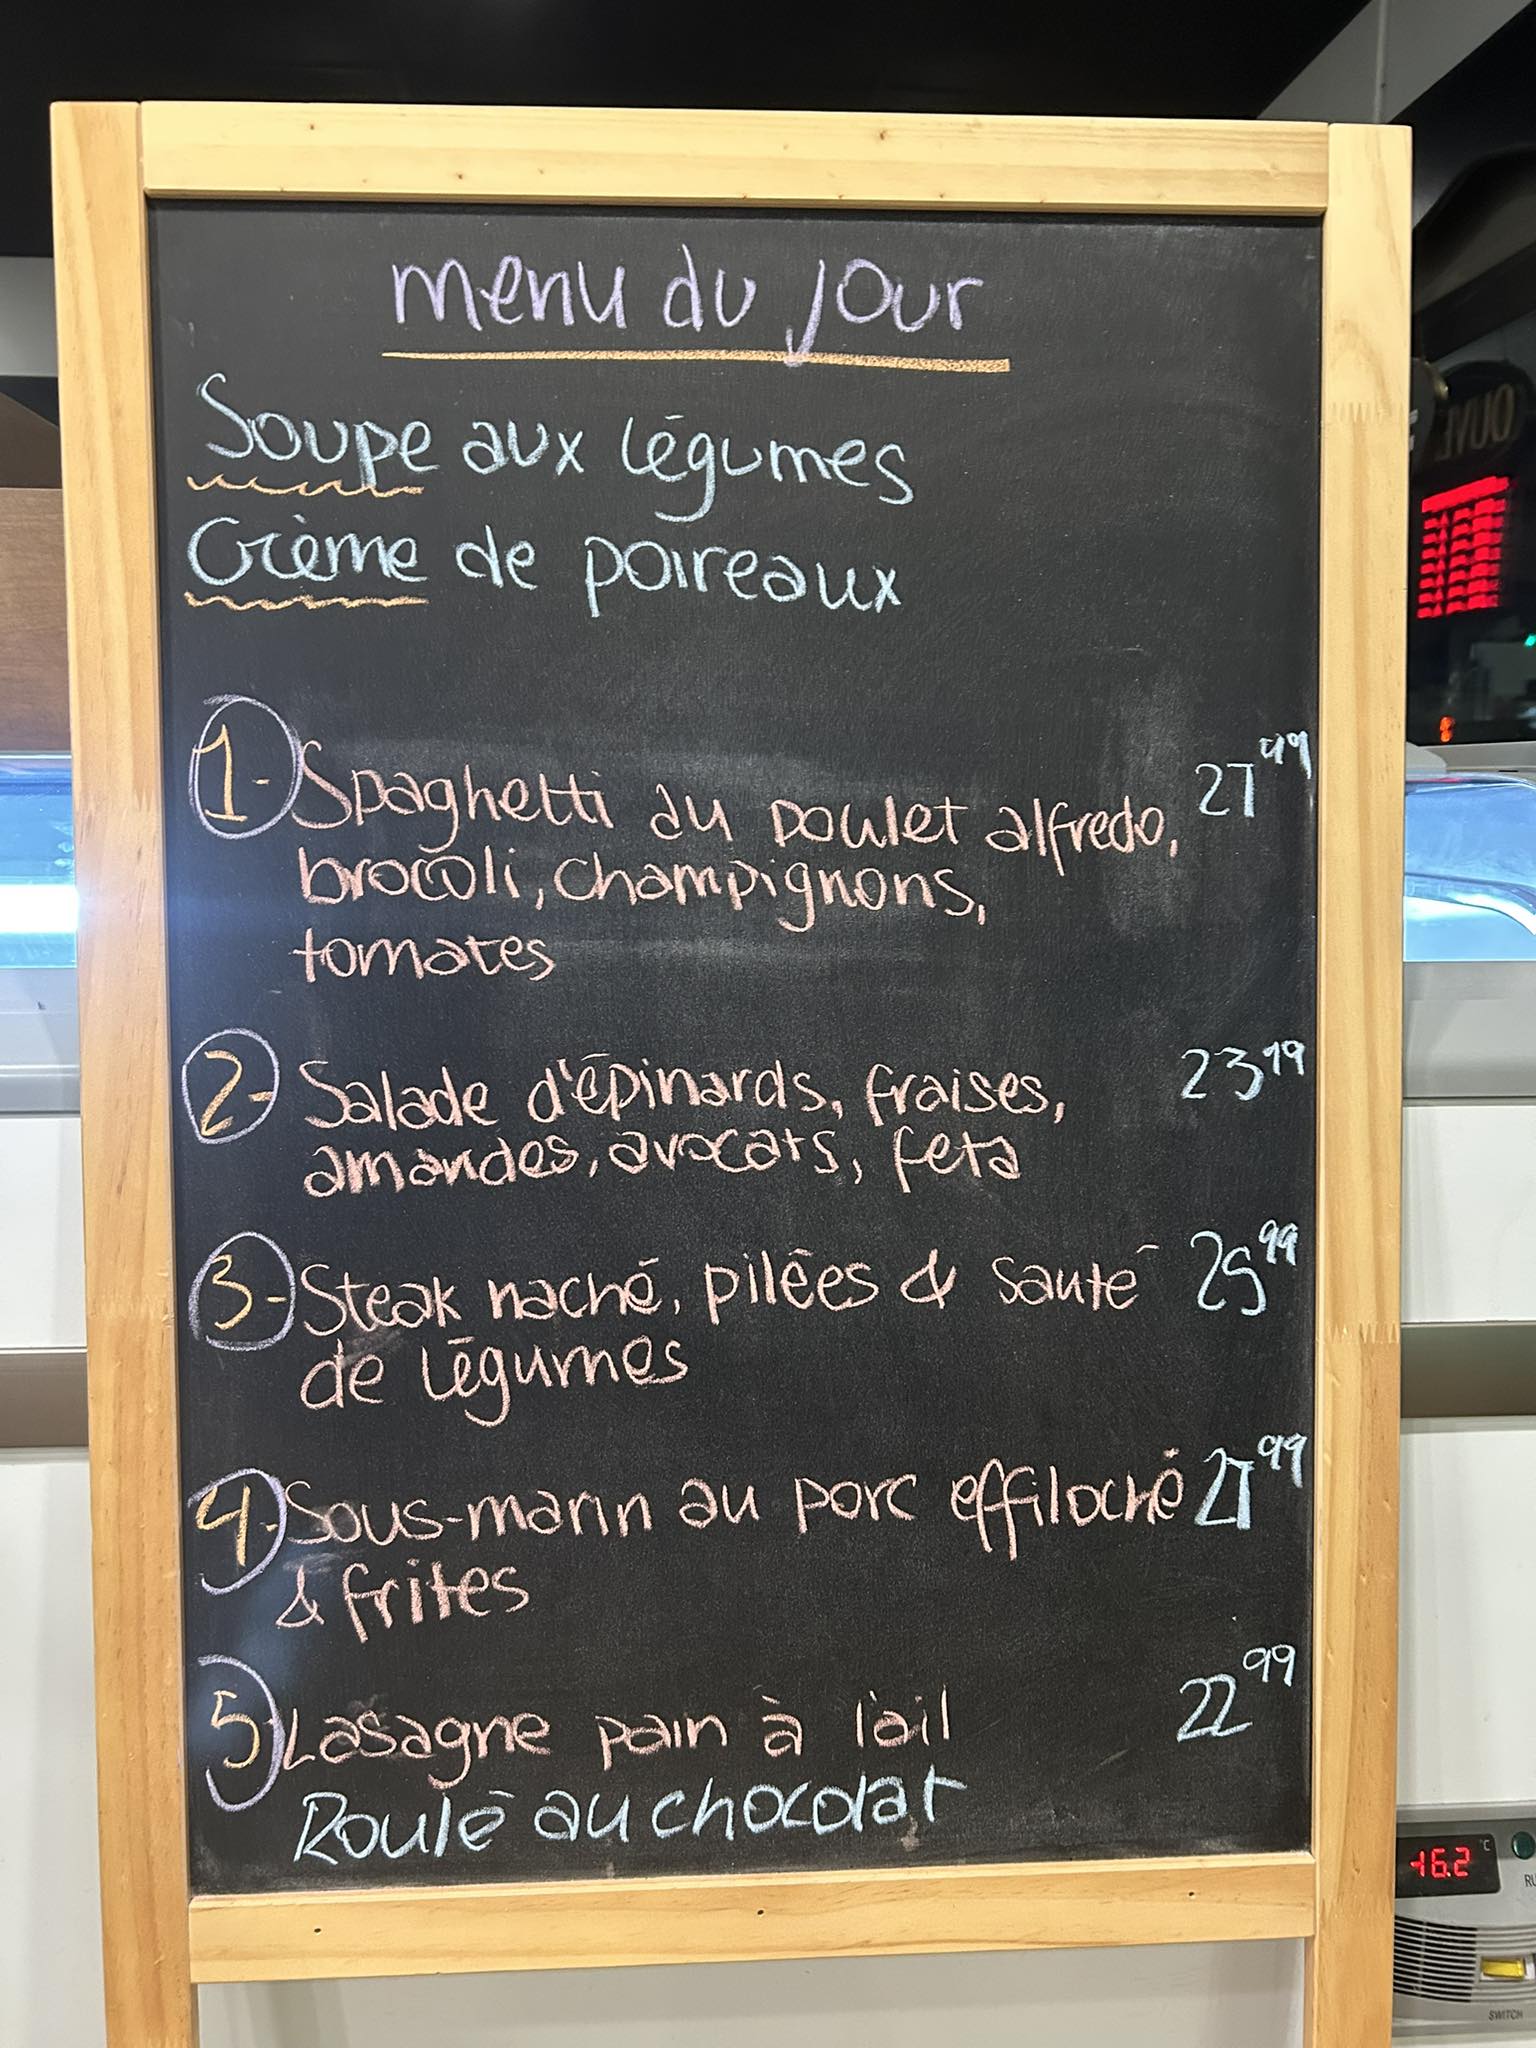 menu du jour
Soupe aux légumes
Crème de poireaux
1- Spaghetti au poulet alfredo, 27 99
brocoli, champignons,
tomates
2- Salade d'épinards, fraises, 23 99
amandes, avocats, feta
3- Steak haché, pilées & sauté 25 99
de légumes
4- Sous-marin au porc effiloché 27 99
& frites
5- Lasagne pain à l'ail 22 99
Roulé au chocolat
-16.2 °C
SWITCH